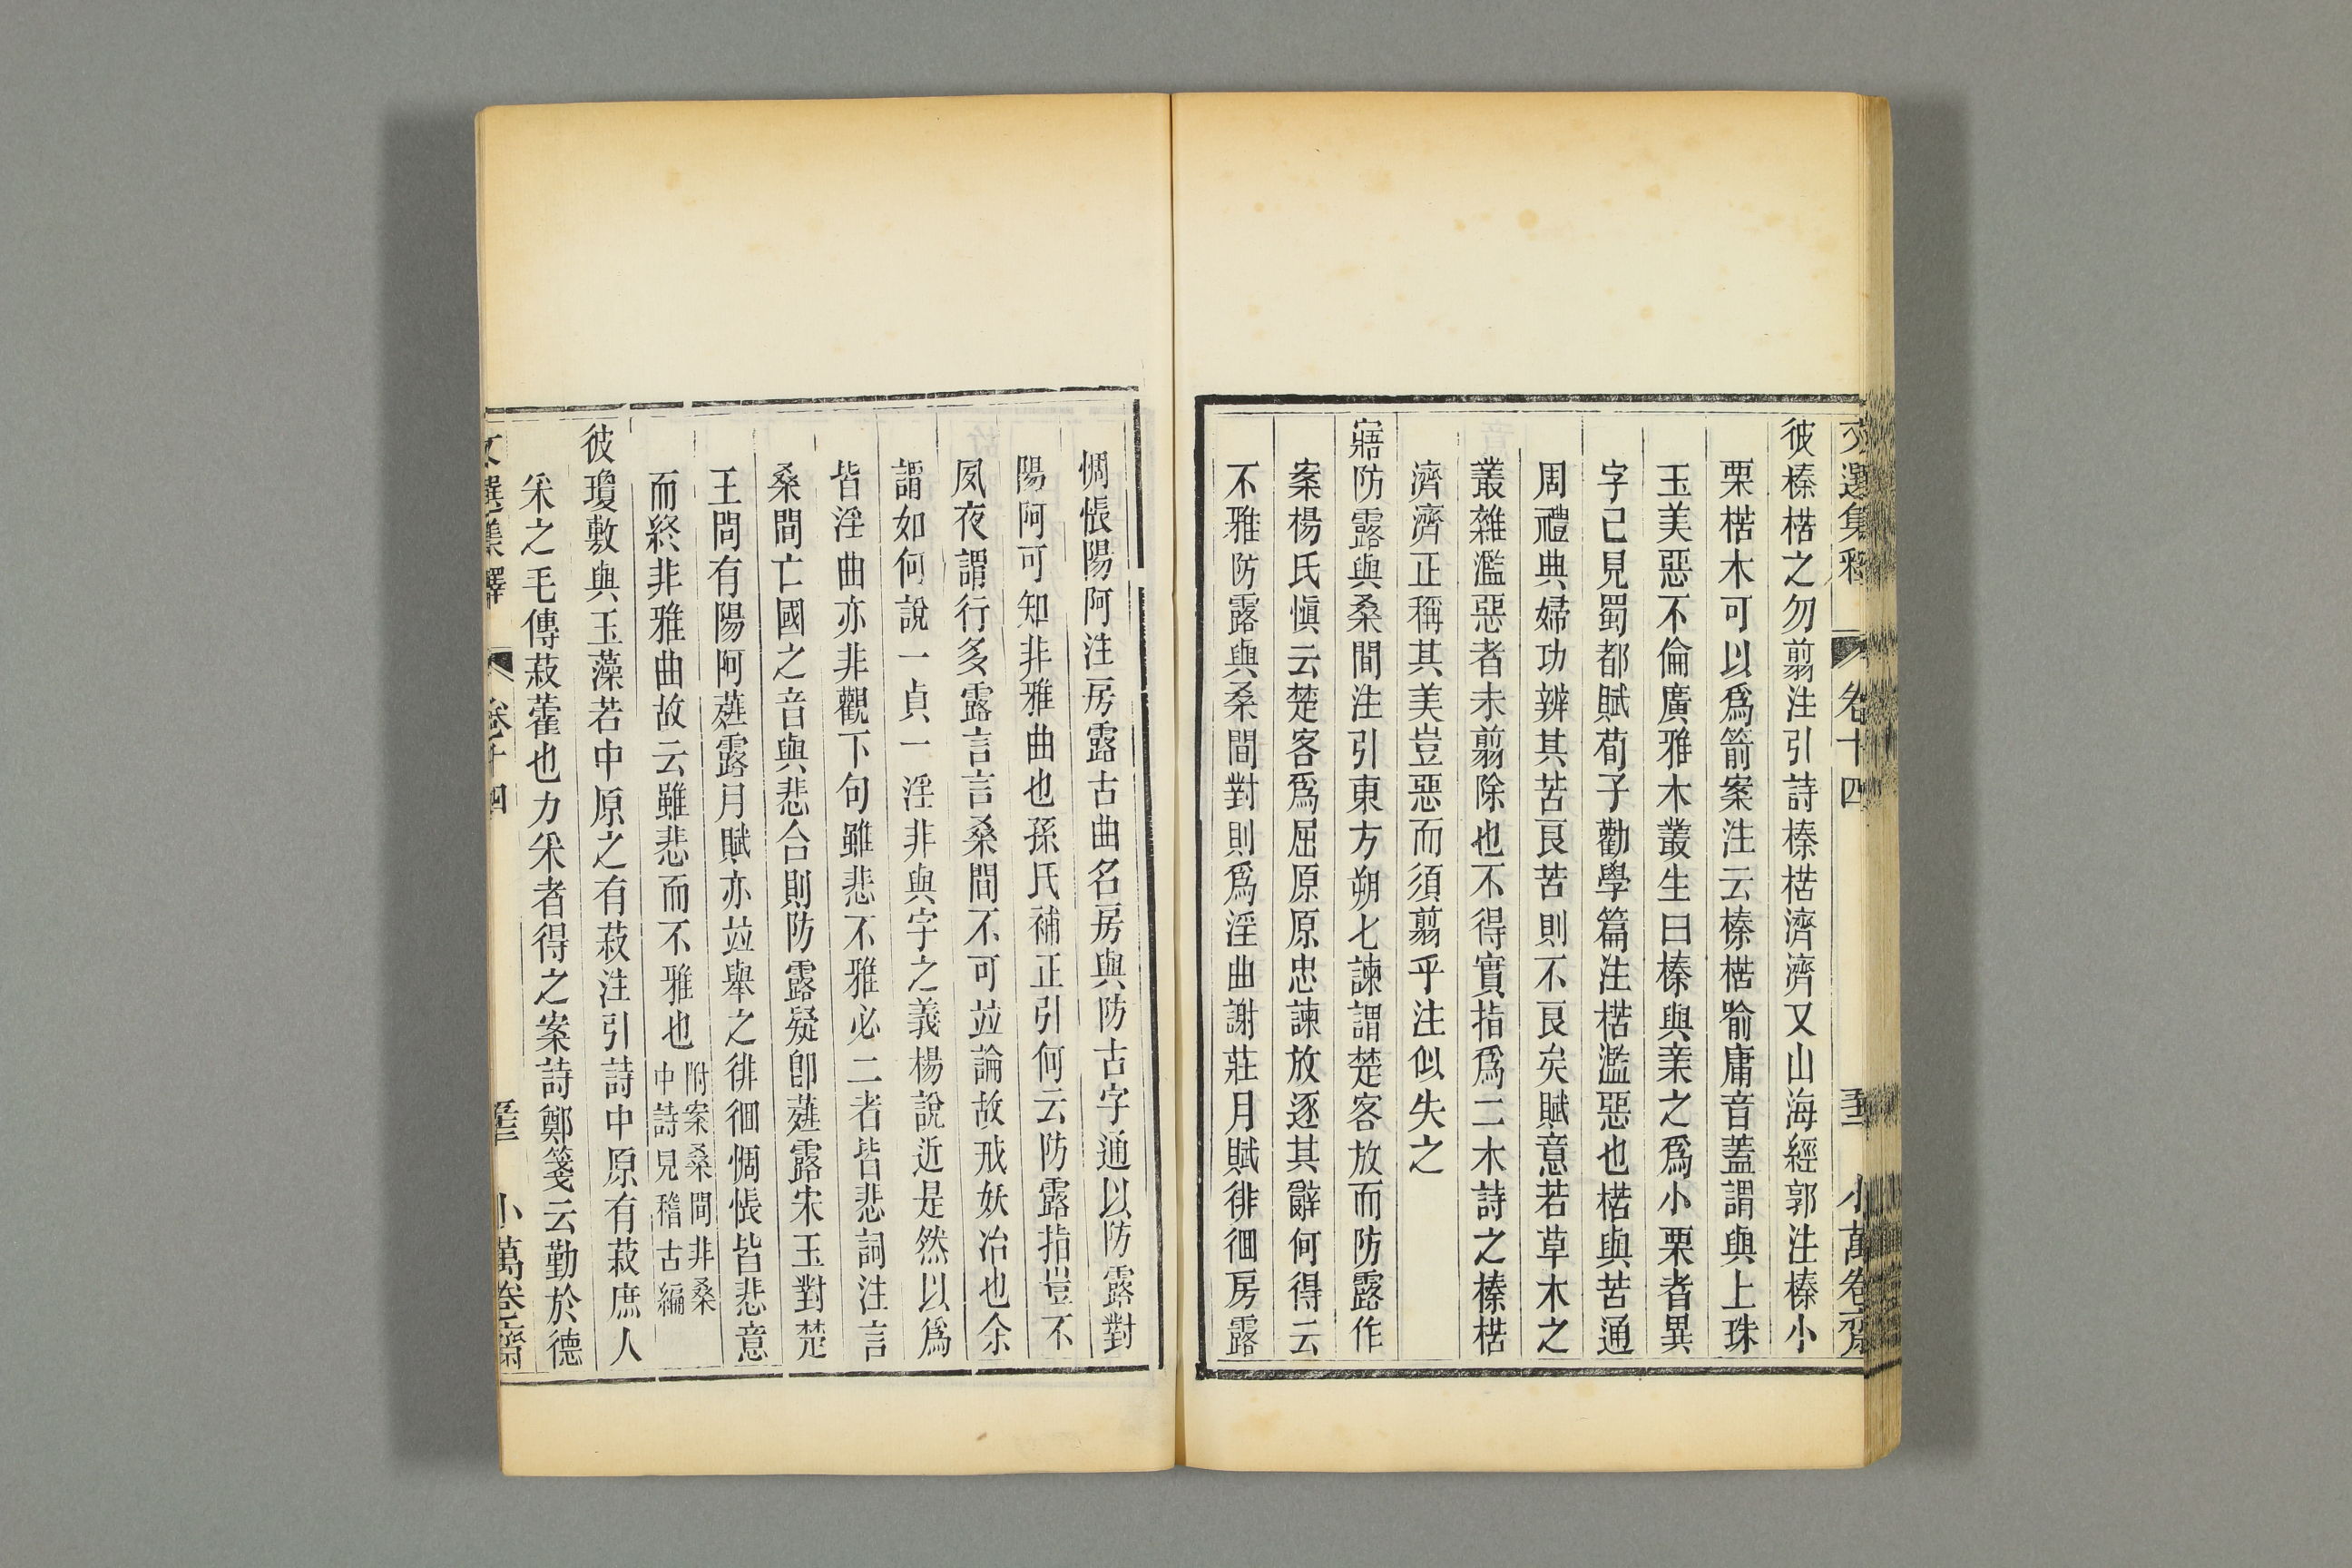 文選集釋 卷十四 小萬卷齋
彼榛楛之勿翦注引詩榛楛濟濟又山海經郭注榛小
栗楛木可以爲箭案注云榛楛喻庸音蓋謂與上珠
玉美惡不倫廣雅木叢生曰榛與亲之爲小栗者異
字已見蜀都賦荀子勸學篇注楛濫惡也楛與苦通
周禮典婦功辨其苦良苦則不良矣賦意若草木之
叢雜濫惡者未翦除也不得實指爲二木詩之榛楛
濟濟正稱其美豈惡而須翦乎注似失之
寤防露與桑間注引東方朔七諫謂楚客放而防露作
案楊氏愼云楚客爲屈原原忠諫放逐其辭何得云
不雅防露與桑間對則爲淫曲謝莊月賦徘徊房露
惆悵陽阿注房露古曲名房與防古字通以防露對
陽阿可知非雅曲也孫氏補正引何云防露指豈不
夙夜謂行多露言言桑間不可竝論故戒妖冶也余
謂如何說一貞一淫非與字之義楊說近是然以爲
皆淫曲亦非觀下句雖悲不雅必二者皆悲詞注言
桑間亡國之音與悲合則防露疑卽薤露宋玉對楚
王問有陽阿薤露月賦亦竝舉之徘徊惆悵皆悲意
而終非雅曲故云雖悲而不雅也
附案桑間非桑
中詩見稽古編
彼瓊敷與玉藻若中原之有菽注引詩中原有菽庶人
采之毛傳菽藿也力采者得之案詩鄭箋云勤於德
文選集釋 卷十四 小萬卷齋